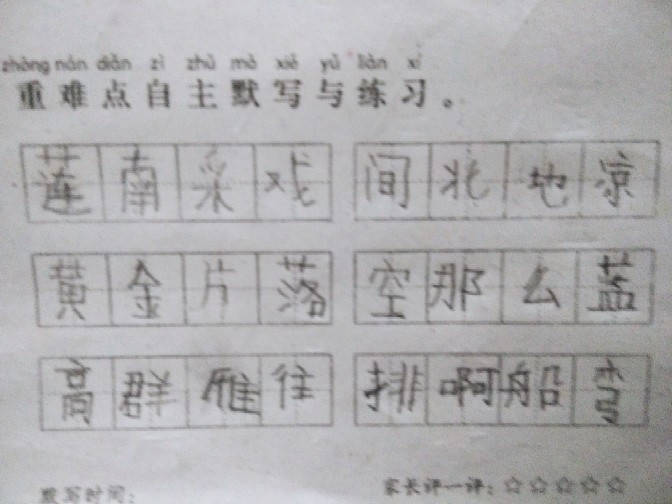 zhòng nán diǎn zì zhǔ mò xiě yǔ liàn xí
重难点自主默写与练习。
莲南采戏 间北地凉
黄金片落 空那么蓝
高群雁往 排啊船弯
默写时间： 家长评一评：☆☆☆☆☆